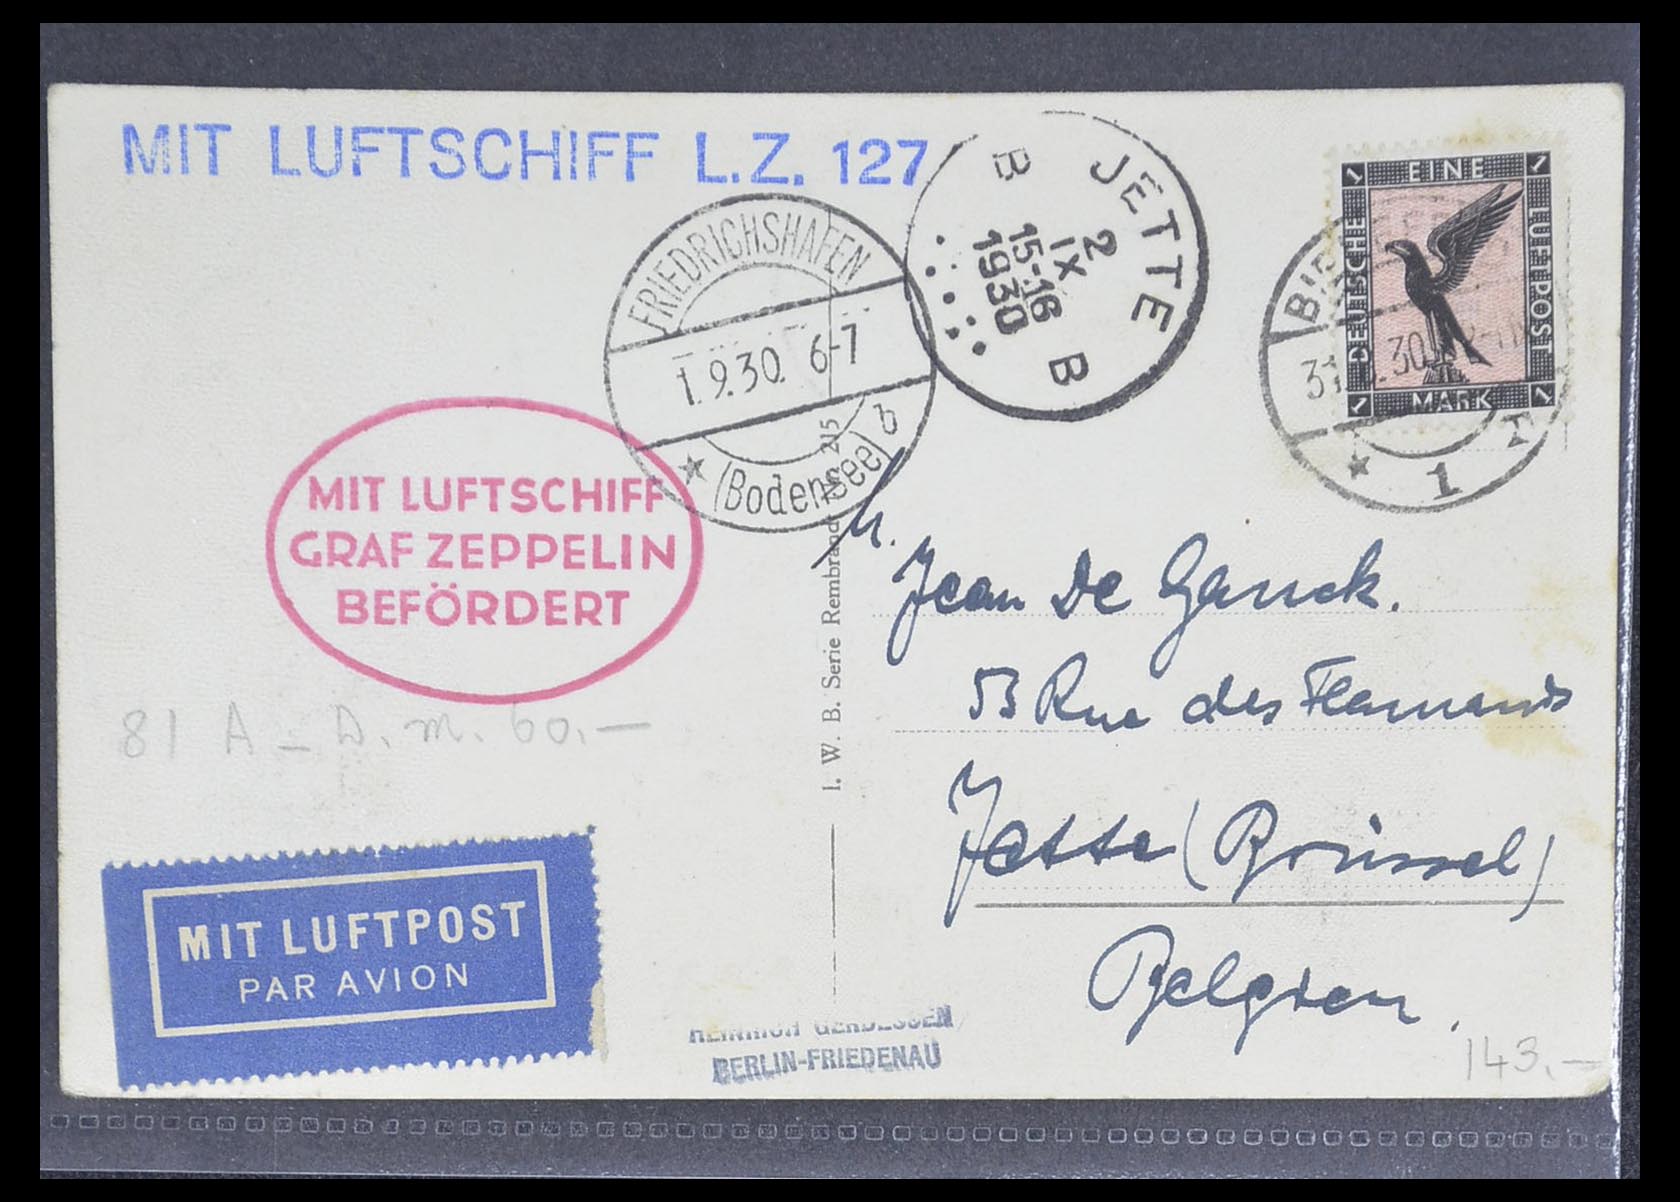 MIT LUFTSCHIFF L.Z. 127
FRIEDRICHSHAFEN
1.9.30. 6-7
(Bodensee) b
JETTE
B
2
IX
15-16
1930
B
1 EINE 1
DEUTSCHE
LUFTPOST
1 MARK 1
31. 30.
1
MIT LUFTSCHIFF
GRAF ZEPPELIN
BEFÖRDERT
I. W. B. Serie Rembrandt No 215
M.
Jean De Ganck.
53 Rue des Flamands
Jette (Brüssel)
Belgien.
81 A - D.M. 60.—
MIT LUFTPOST
PAR AVION
HEINRICH GERDESSEN
BERLIN-FRIEDENAU
143.—